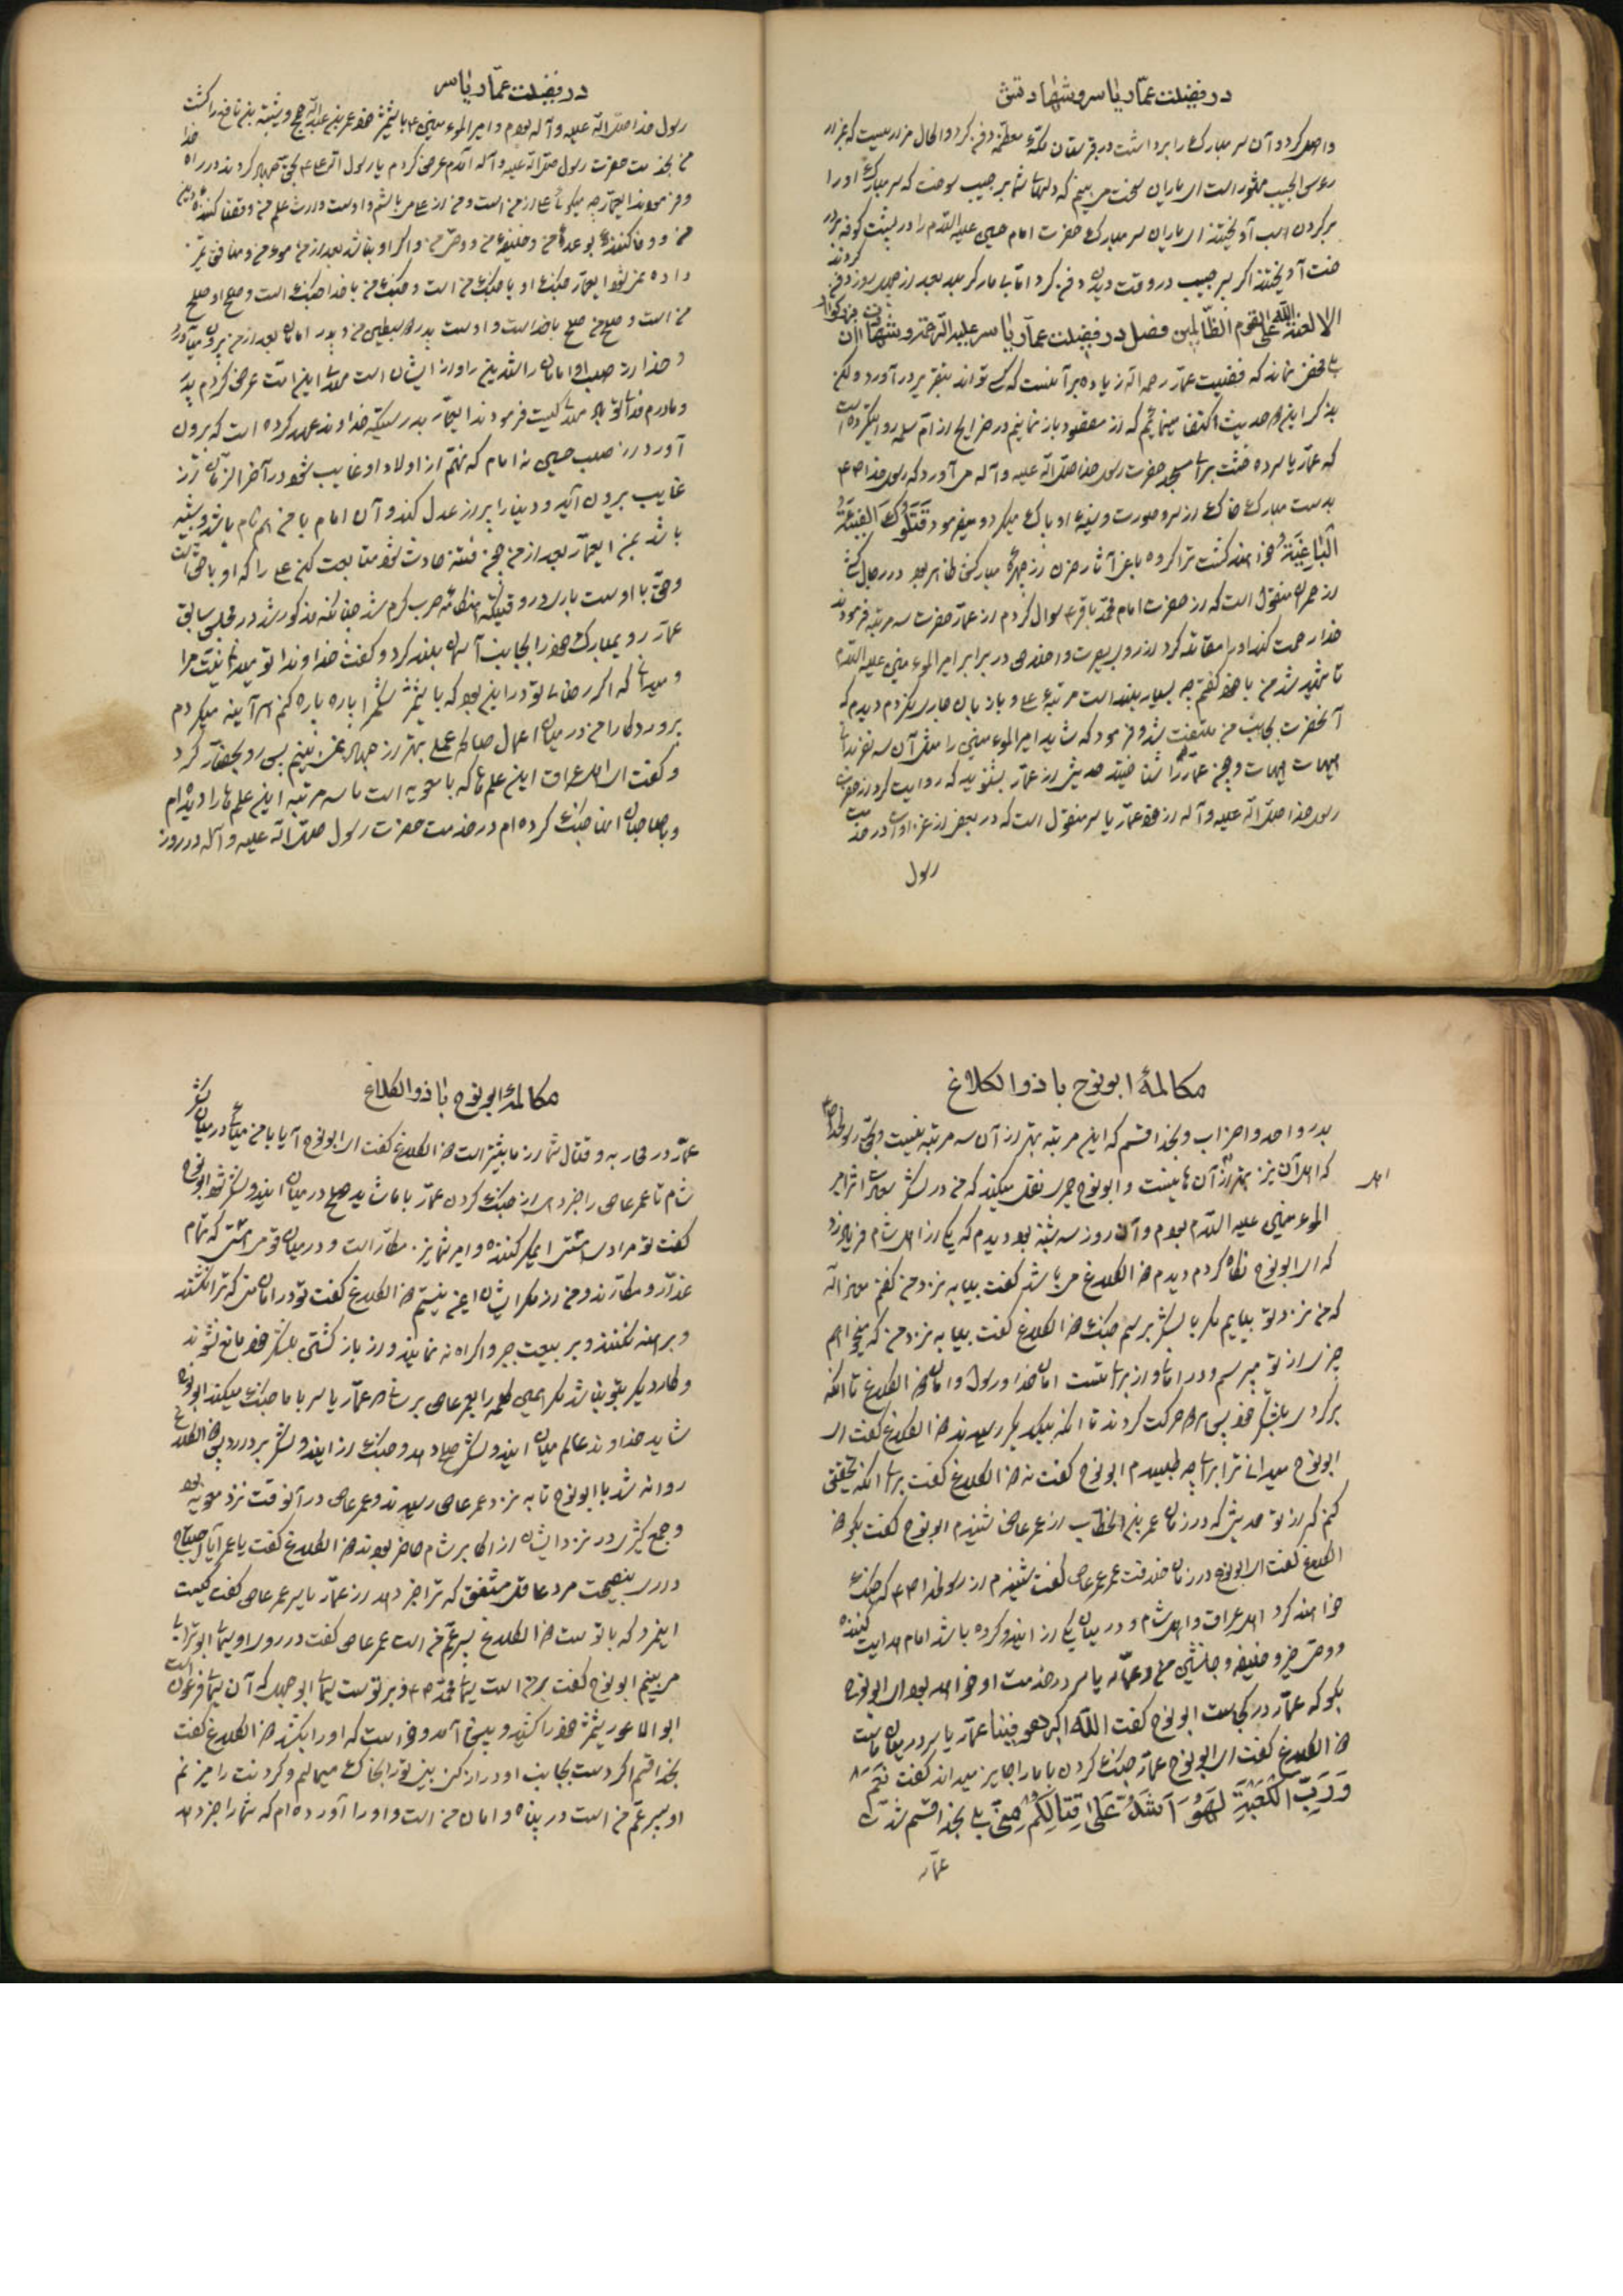 در فضیلت عمّار یاسر و شهادتش
واصل کرد و آن سر مبارک را برداشت در قبرستان مکّه معظمه دفن کرد و الحال مزاریست که مزار
رءوس الحبیب مشهور است ای یاران سخت می‌بینم که دلهای شما بر حبیب سوخت که سر مبارک او را
بر گردن اسب آویختند ای یاران سر مبارک حضرت امام حسین علیه السّلام را در پشت کوفه بر در
خت آویختند اگر سر حبیب در وقت دیدن دفن کرد امّا بعد از چهل روز دفن کردند
الا لعنة الله علی القوم الظالمین فصل در فضیلت عمّار یاسر علیه الرّحمه و شهادت آن بزرگوار
بر مخفی نماند که فضیلت عمّار رحمه الله زیاده بر آنست که کسی تواند بتقریر در آورد ولکن
بذکر این حدیث اکتفا مینمائیم که از مقصود باز نمانیم در خرایج از امّ سلمه روایت کرده است
که عمّار یاسر ده خشت برای مسجد حضرت رسول خدا صلّی الله علیه و آله می‌آورد که رسول خدا ص
بدست مبارک خاک از سر و صورت و سینه او پاک میکرد و میفرمود تَقتُلُکَ الفِئَةُ
الباغِیَةُ خواهند کشت ترا گروه باغی آثار حزن از چهرهٔ مبارکش ظاهر بود در رجال کشی
از حمران منقول است که از حضرت امام محمّد باقر ع سوال کردم از عمّار حضرت سه مرتبه فرمودند
خدا رحمت کند او را مقاتله کرد از روی بصیرت و اخلاص در برابر امیر المومنین علیه السّلام
تا شهید شد من با خود گفتم چه بسیار بلند است مرتبهٔ وی و باز بآن جاری نکردم دیدم که
آنحضرت بجانب من ملتفت شد و فرمود که شاید امیر المومنین را مثل آن سه نفر بدانی
هیهات هیهات و همچنین عمّار را شناختید حدیثی از عمّار بشنوید که روایت کرد از حضرت
رسول خدا صلّی الله علیه و آله از خود عمّار یاسر منقول است که در بعضی از غزوات در خدمت
رسول
در فضیلت عمّار یاسر
رسول خدا صلّی الله علیه و آله بودم و امیر المومنین ع با شمشیر خود عمرو بن عبد الله جمحی و شیبه بن نافع را کشت
من بخدمت حضرت رسول صلّی الله علیه و آله آمدم عرض کردم یا رسول الله علی ع بحق جهاد کردند در راه خدا
و فرمودند ایعمّار چه میگوئی علی از من است و من از علی می‌باشم و اوست وارث علم من و قضا کننده دین
من و وفا کنندهٔ بوعدهٔ من و خلیفهٔ من و وصی من و اگر او نباشد بعد از من مومن و منافق تمیز
داده نمیشود ایعمّار جنگ او با جنگ من است و جنگ من با خدا جنگ است و صلح او صلح
من است و صلح من صلح با خداست و اوست پدر دو سبطین من و پدر امامان بعد از من بیرون می‌آورد
خدا از صلب او امامان راشدین را و از ایشان است مهدی این امّت عرض کردم پدر
و مادرم فدای تو باد مهدی کیست فرمودند ایعمّار بدرستیکه خداوند عهد کرده است که بیرون
آورد از صلب حسین نه امام که نهم از اولاد او غایب شود در آخر الزمان از
غایب بیرون آید و دنیا را پر از عدل کند و آن امام با من هم نام باشد و شبیه
باشد بمن ایعمّار بعد از من همچنین فتنه حادث شود متابعت کن علی را که او با حق است
و حق با اوست باری در وقتیکه هنگامهٔ حرب گرم شد چنانکه مذکور شد در مجلس سابق
عمّار روی مبارک خود را بجانب آسمان بلند کرد و گفت خداوندا تو میدانی نیّت مرا
و میدانی که اگر رضای تو در این بود که با شمشیر شکم را پاره پاره کنم هر آینه میکردم
پروردگارا من در میان اعمال صالحه عملی بهتر از جهاد نمی‌بینم پس رو بحضّار کرد
و گفت ای اهل عراق این علمها که با معویه است ما سه مرتبه این علمها را دیده‌ام
و با صاحبان آنها جنگ کرده‌ام در خدمت حضرت رسول صلّی الله علیه و آله در روز
مکالمهٔ ابو نوح با ذو الکلاع
بدر و احد و احزاب و بخدا قسم که این مرتبه بهتر از آن سه مرتبه نیست و بحق رسولخدا ص
که اهل آن نیز بهتر از آن‌ها نیست و ابو نوح حمیری نقل میکند که من در لشکر امیر
المومنین علیه السّلام بودم و آن روز سه شنبه بود دیدم که یکی از اهل شام فریاد زد
که ای ابو نوح نگاه کردم دیدم ذو الکلاع می‌باشد گفت بیا به نزد من گفتم معاذ الله
که من نزد تو بیایم مگر با لشکر برسم جنگ ذو الکلاع گفت بیا به نزد من که میخواهم
چیزی از تو بپرسم و در امانی از برای تست امان خدا و رسول و امان ذو الکلاع تا آنکه
برگردی بلشکر خود پس هر دو حرکت کردند تا آنکه بیکدیگر رسیدند ذو الکلاع گفت ای
ابو نوح میدانی ترا برای چه طلبیدم ابو نوح گفت نه ذو الکلاع گفت برای آنکه تحقیق
کنم که از تو حدیثی که در زمان عمر بن الخطّاب از عمر عاص شنیدم ابو نوح گفت بگو ذو
الکلاع گفت ای ابو نوح در زمان خلافت عمر عمر عاص گفت شنیدم از رسولخدا ص که جنگ
خواهند کرد اهل عراق و اهل شام و در میان یکی از ایندو گروه باشد امام هدایت کننده
و وصی خیر و خلیفه و جانشین من و عمّار یاسر در خدمت او خواهد بود ای ابو نوح
بگو که عمّار در کجاست ابو نوح گفت اللّه اکبر هو فینا عمّار یاسر در میان ماست
ذو الکلاع گفت ای ابو نوح عمّار جنگ کردن با ما را جایز میداند گفت نَعَم
وَ رَبِّ الکَعبَةِ لَهُوَ اَشَدُّ عَلی قِتالِکُم مِنّی بلی بخدا قسم شدّت
عمّار
اهل
مکالمهٔ ابو نوح با ذو الکلاع
عمّار در محاربه و قتال شما از ما بیشتر است ذو الکلاع گفت ای ابو نوح آیا با من میائی در میان لشکر
شام تا عمر عاص را خبر دهی از جنگ کردن عمّار با ما شاید صلح در میان ایندو لشکر شود ابو نوح
گفت تو مرادی هستی مکر کننده و امیر شما نیز مکّار است و در میان قومی هستی که تمام
غدّار و مکّارند و من از مکر ایشان ایمن نیستم ذو الکلاع گفت تو در امان منی که ترا نکشند
و برهنه نکنند و بر بیعت جبر و اکراه ننمایند و از باز گشتن بلشکر خود مانع نشوند
و کار دیگر بتو نباشد مگر همین کلمه را بعمر عاص برسانی که عمّار یاسر با ما جنگ میکند ابو نوح
شاید خداوند عالم میان ایندو لشکر صلح دهد و جنگ از ایندو لشکر بردارد پس ذو الکلاع
روانه شد با ابو نوح تا به نزد عمر عاص رسیدند و عمر عاص در آنوقت نزد معویه بود
و جمع کثیری در نزد ایشان از اکابر شام حاضر بودند ذو الکلاع گفت یا عمر آیا احتیاج
داری بنصیحت مرد عاقل مشفق که ترا خبر دهد از عمّار یاسر عمر عاص گفت کیست
اینمرد که با توست ذو الکلاع پسر عمّ من است عمر عاص گفت در روی او سیمای ابو ترابیان
می‌بینم ابو نوح گفت بر من است سیمای محمّد ص و بر توست سیمای ابو جهل که آن سیمای فرعون است
ابو الاعور شمشیر خود را کشید و پیش آمد و خواست که او را بکشد ذو الکلاع گفت
بخدا قسم اگر دست بجانب او دراز کنی بینی تو را بخاک میمالم و گردنت را میزنم
او پسر عمّ من است در پناه و امان من است و او را آورده‌ام که شما را خبر دهد